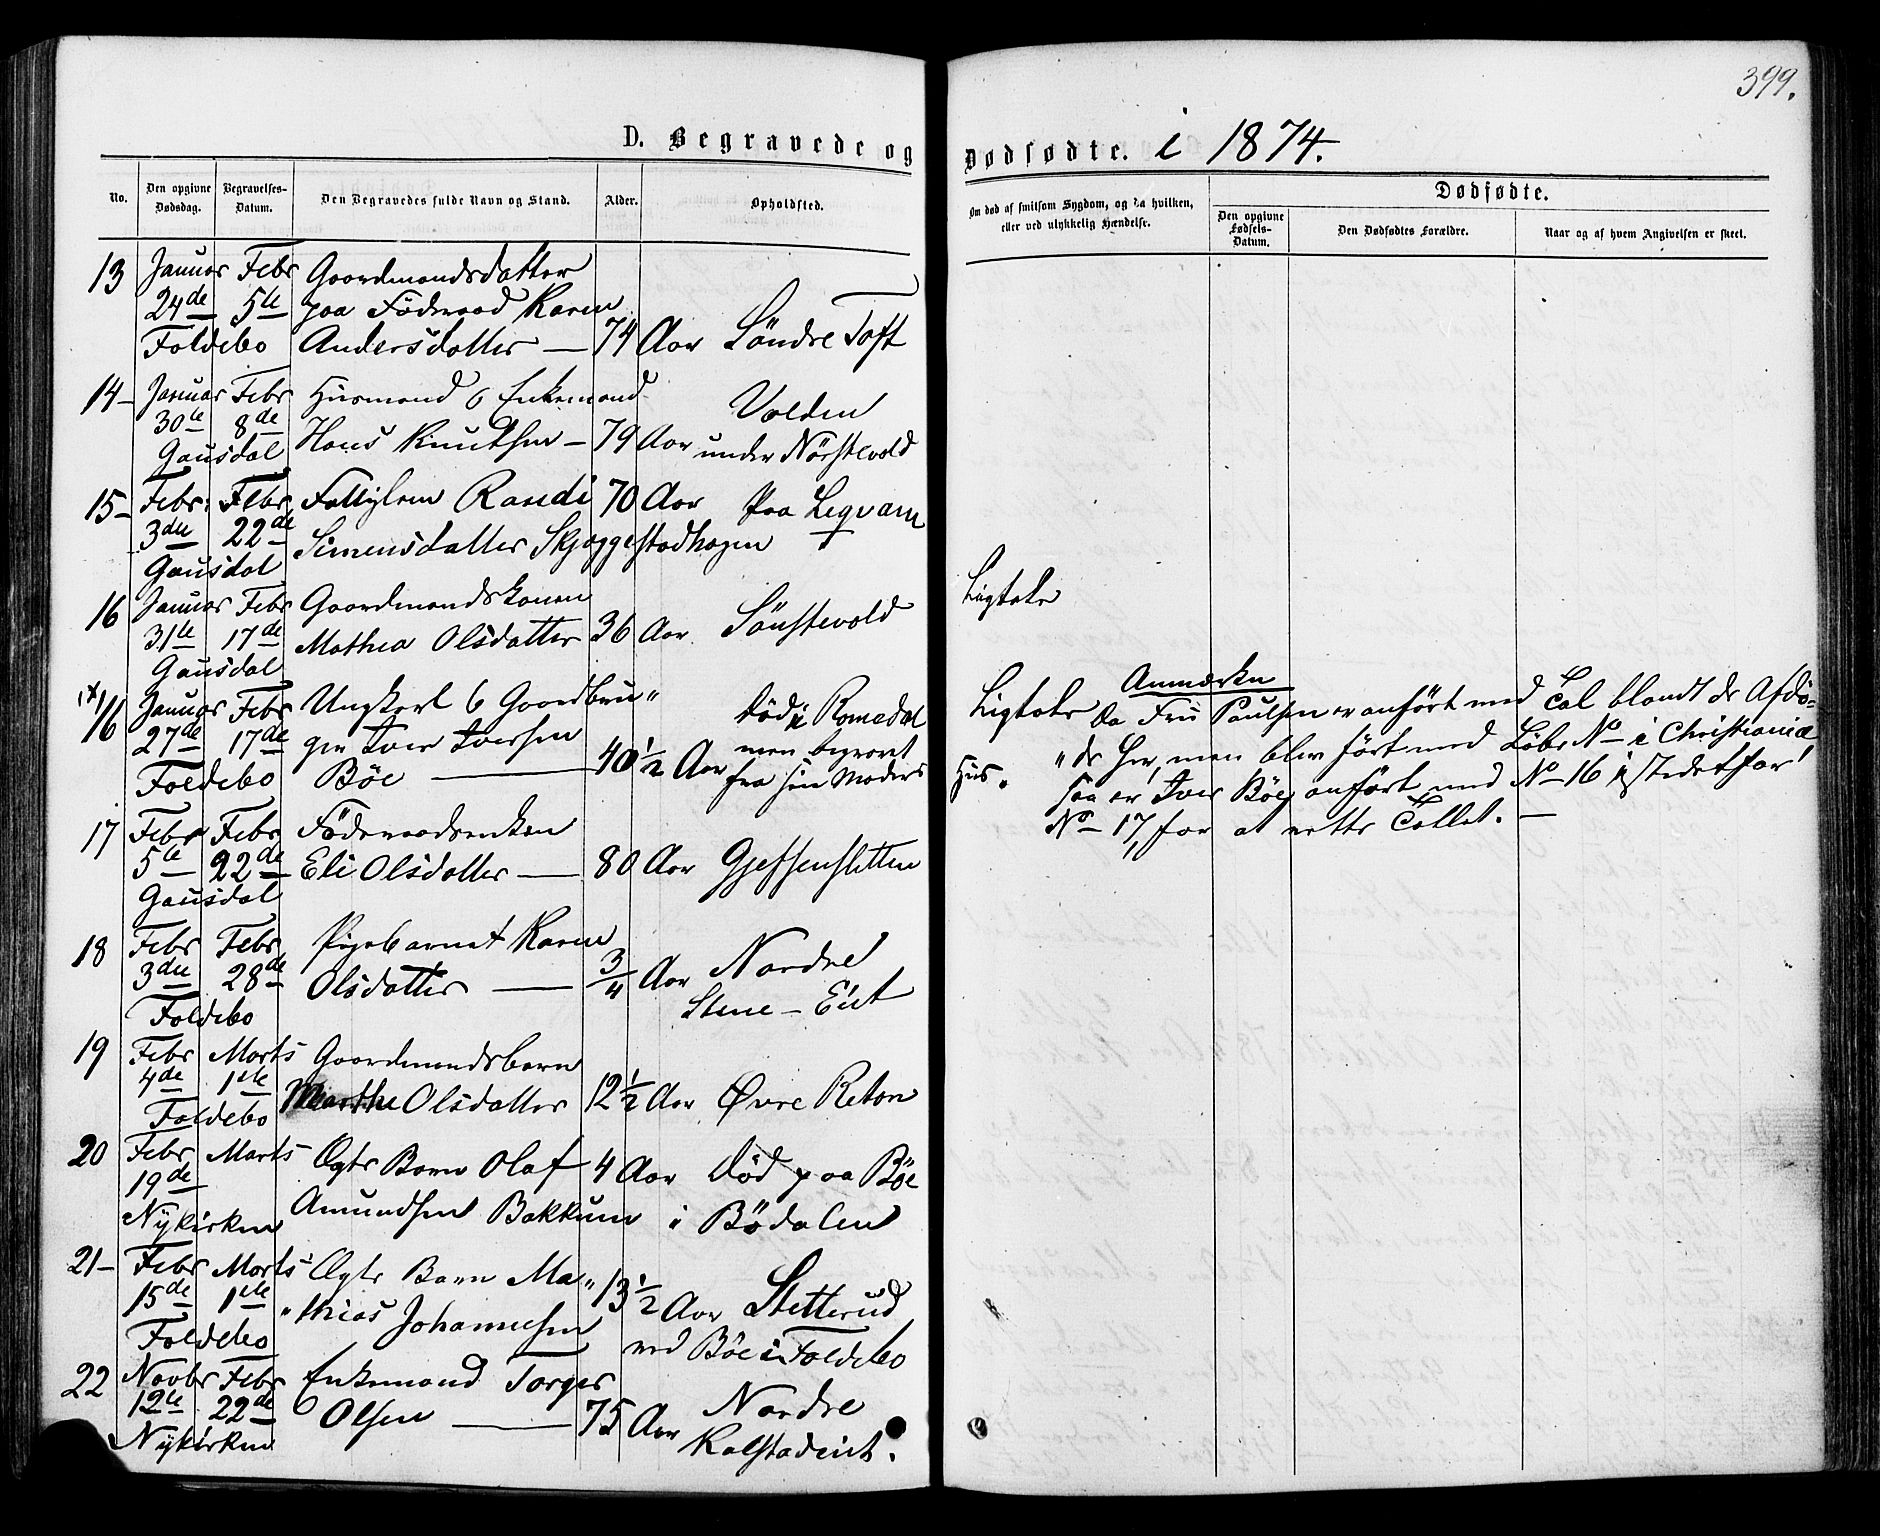 399.
D. Begravede og
Dødsødte. i 1874.
No.
Den opgivne Dødsdag.
Begravelses-Datum.
Den Begravedes fulde Navn og Stand.
Alder.
Opholdsted.
Om død af smitsom Sygdom, og da hvilken, eller ved ulykkelig Hændelse.
Dødfødte.
Den opgivne Fødsels-Datum.
Den Dødfødtes Forældre.
Naar og af hvem Angivelsen er skeet.
13 Januar Febr Gaardmandsdatter
24de 5te paa Föderaad Karen
Foldebo Andersdatter — 74 Aar Söndre Toft
14 – Januar Febr Husmand & Enkemand
30te 8de Hans Knudsen – 79 Aar Volden
Gausdal under Nörstevold
15 – Febr. Febr Fattiglem Randi 70 Aar Paa Legvam
3die 22de Simensdatter Skjæggestadhagen
Gausdal
16 Januar Febr Gaardmandskonen
31te 17de Mathea Olsdatter 36 Aar Sönstevold Ligtale
Gausdal
16 Januar Febr Ungkarl & Gaardbru„
27de 17de ger Iver Iversen 40 1/2 Aar Död i Romedal
Foldebo Böe — men begravet
fra sin Moders
Ligtale
Hus.
Anmærkn
Da Fru Paulsen er anfört med Tal blandt de Afdö-
„de her, men blev fört med Löbe No i Christiania
saa er Iver Böe anfört med No 16 istedetfor
No 17, for at rette Tallet. —
17 Febr Febr Föderaadsenken
5te 22de Eli Olsdatter — 80 Aar Gjefsensletten
Gausdal
18 Febr Febr Pigebarnet Karen
3die 28de Olsdatter — 3/4 Aar Nordre
Foldebo Stene – Eiet
19 Febr Marts Gaardmandsbarn
4de 1ste Marthe Olsdatter 12 1/2 Aar Øvre Reton
Foldebo
20 Febr Marts Ægte Barn Olaf 4 Aar Död paa Böe
19de Amundsen Bakkum i Bödalen
Nykirken
21 – Febr Marts Ægte Barn Ma„
15de 1ste „thias Johannesen 13 1/2 Aar Sletterud
Foldebo ved Böe i Foldebo
22 Novbr Febr Enkemand Torger
12te 22de Olsen — 75 Aar Nordre
Nykirken Kalstadeiet.